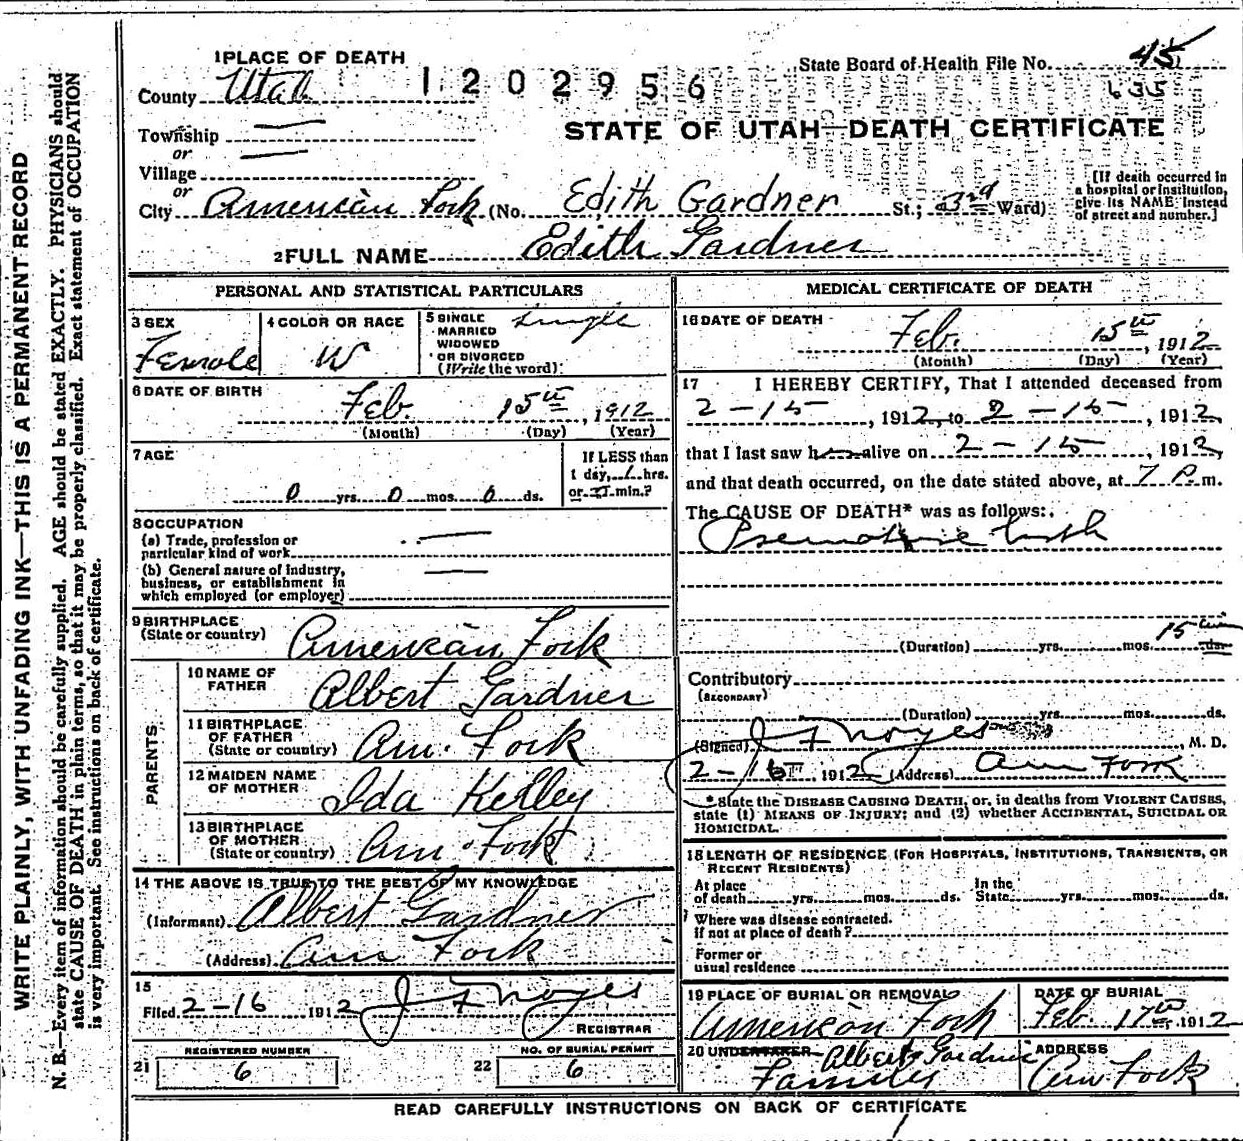 WRITE PLAINLY, WITH UNFADING INK—THIS IS A PERMANENT RECORD
N. B.—Every item of information should be carefully supplied. AGE should be stated EXACTLY. PHYSICIANS should
state CAUSE OF DEATH in plain terms, so that it may be properly classified. Exact statement of OCCUPATION
is very important. See instructions on back of certificate.
1 PLACE OF DEATH
County Utah
1202956
State Board of Health File No. 45
635
Township —
or
Village —
or
STATE OF UTAH—DEATH CERTIFICATE
City American Fork (No. Edith Gardner St.; 3rd Ward)
[If death occurred in
a hospital or institution,
give its NAME instead
of street and number.]
2 FULL NAME Edith Gardner
PERSONAL AND STATISTICAL PARTICULARS
3 SEX
Female
4 COLOR OR RACE
W
5 SINGLE
MARRIED
WIDOWED
OR DIVORCED
(Write the word)
Single
6 DATE OF BIRTH
Feb. 15th, 1912
(Month) (Day) (Year)
7 AGE
0 yrs. 0 mos. 0 ds.
If LESS than
1 day, 1 hrs.
or min.?
8 OCCUPATION
(a) Trade, profession or
particular kind of work —
(b) General nature of industry,
business, or establishment in
which employed (or employer) —
9 BIRTHPLACE
(State or country) American Fork
PARENTS
10 NAME OF
FATHER Albert Gardner
11 BIRTHPLACE
OF FATHER
(State or country) Am. Fork
12 MAIDEN NAME
OF MOTHER Ida Kelley
13 BIRTHPLACE
OF MOTHER
(State or country) Am. Fork
14 THE ABOVE IS TRUE TO THE BEST OF MY KNOWLEDGE
(Informant) Albert Gardner
(Address) Am Fork
15
Filed 2-16 1912 J F Noyes
REGISTRAR
REGISTERED NUMBER
21 6
NO. OF BURIAL PERMIT
22 6
MEDICAL CERTIFICATE OF DEATH
16 DATE OF DEATH
Feb. 15th, 1912
(Month) (Day) (Year)
17 I HEREBY CERTIFY, That I attended deceased from
2-15, 1912, to 2-15, 1912,
that I last saw h alive on 2-15, 1912,
and that death occurred, on the date stated above, at 7 P. m.
The CAUSE OF DEATH* was as follows:
Premature birth
(Duration) yrs. mos. 15 ds.
Contributory
(SECONDARY)
(Duration) yrs. mos. ds.
(Signed) J F Noyes, M. D.
2-16 1912 (Address) Am Fork
*State the DISEASE CAUSING DEATH, or, in deaths from VIOLENT CAUSES,
state (1) MEANS OF INJURY; and (2) whether ACCIDENTAL, SUICIDAL OR
HOMICIDAL.
18 LENGTH OF RESIDENCE (FOR HOSPITALS, INSTITUTIONS, TRANSIENTS, OR
RECENT RESIDENTS)
At place
of death yrs. mos. ds.
In the
State yrs. mos. ds.
Where was disease contracted.
if not at place of death?
Former or
usual residence
19 PLACE OF BURIAL OR REMOVAL
American Fork
DATE OF BURIAL
Feb. 17th 1912
20 UNDERTAKER Albert Gardner
Family
ADDRESS
Am Fork
READ CAREFULLY INSTRUCTIONS ON BACK OF CERTIFICATE